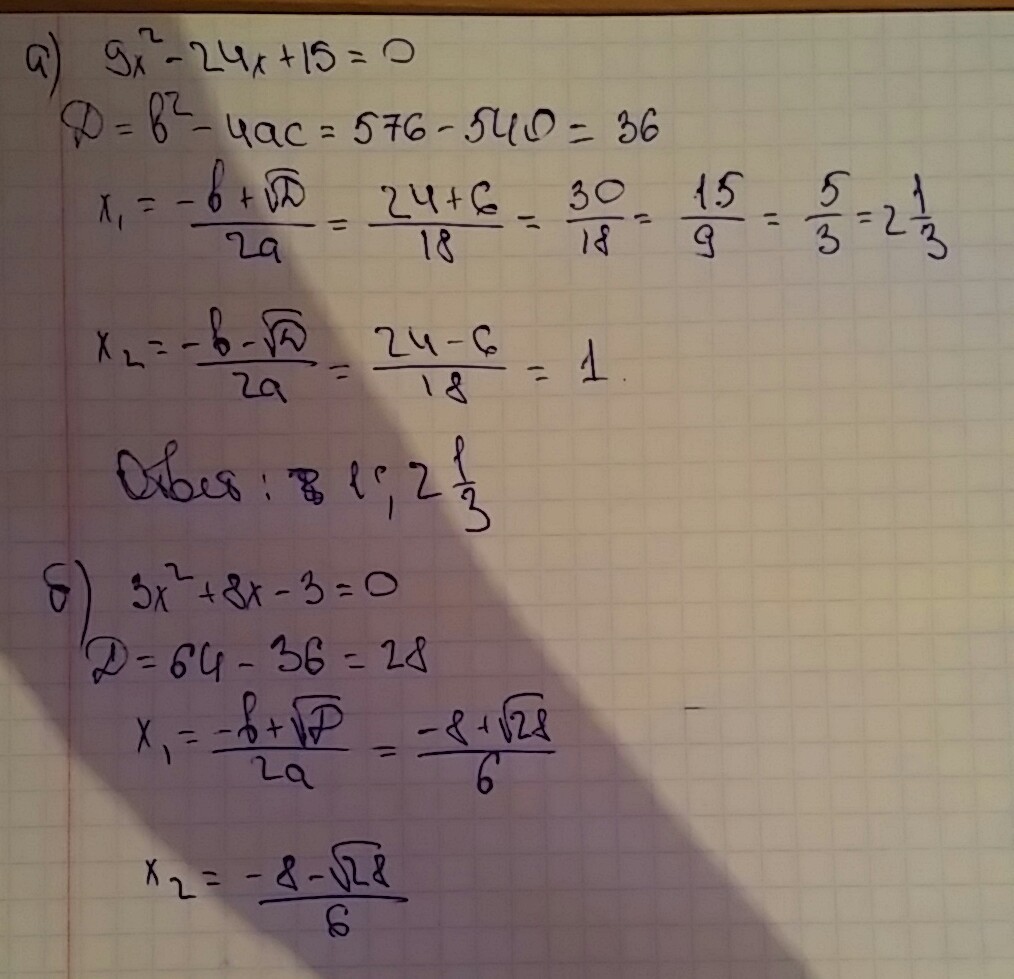 а) 9x² - 24x + 15 = 0
D = b² - 4ac = 576 - 540 = 36
x₁ = (-b + √D)/(2a) = (24 + 6)/18 = 30/18 = 15/9 = 5/3 = 2 1/3
x₂ = (-b - √D)/(2a) = (24 - 6)/18 = 1.
Ответ: 1; 2 1/3
б) 3x² + 8x - 3 = 0
D = 64 - 36 = 28
x₁ = (-b + √D)/(2a) = (-8 + √28)/6
x₂ = (-8 - √28)/6